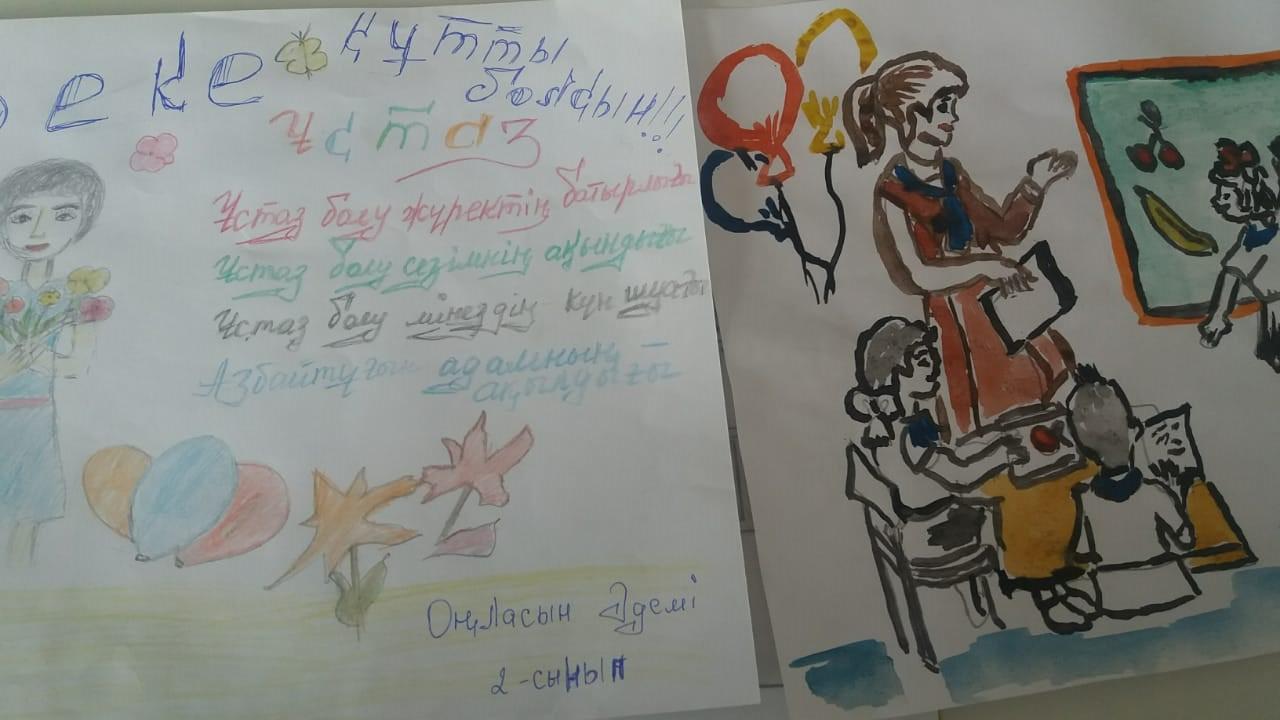 еке құтты
болсын!!!
Ұстаз
Ұстаз болу жүректің батырлығы
Ұстаз болу сезімнің ақындығы
Ұстаз болу мінездің күн шуағы
Азбайтұғын адамның –
ақылдығы
Оңласын Әдемі
2-сынып